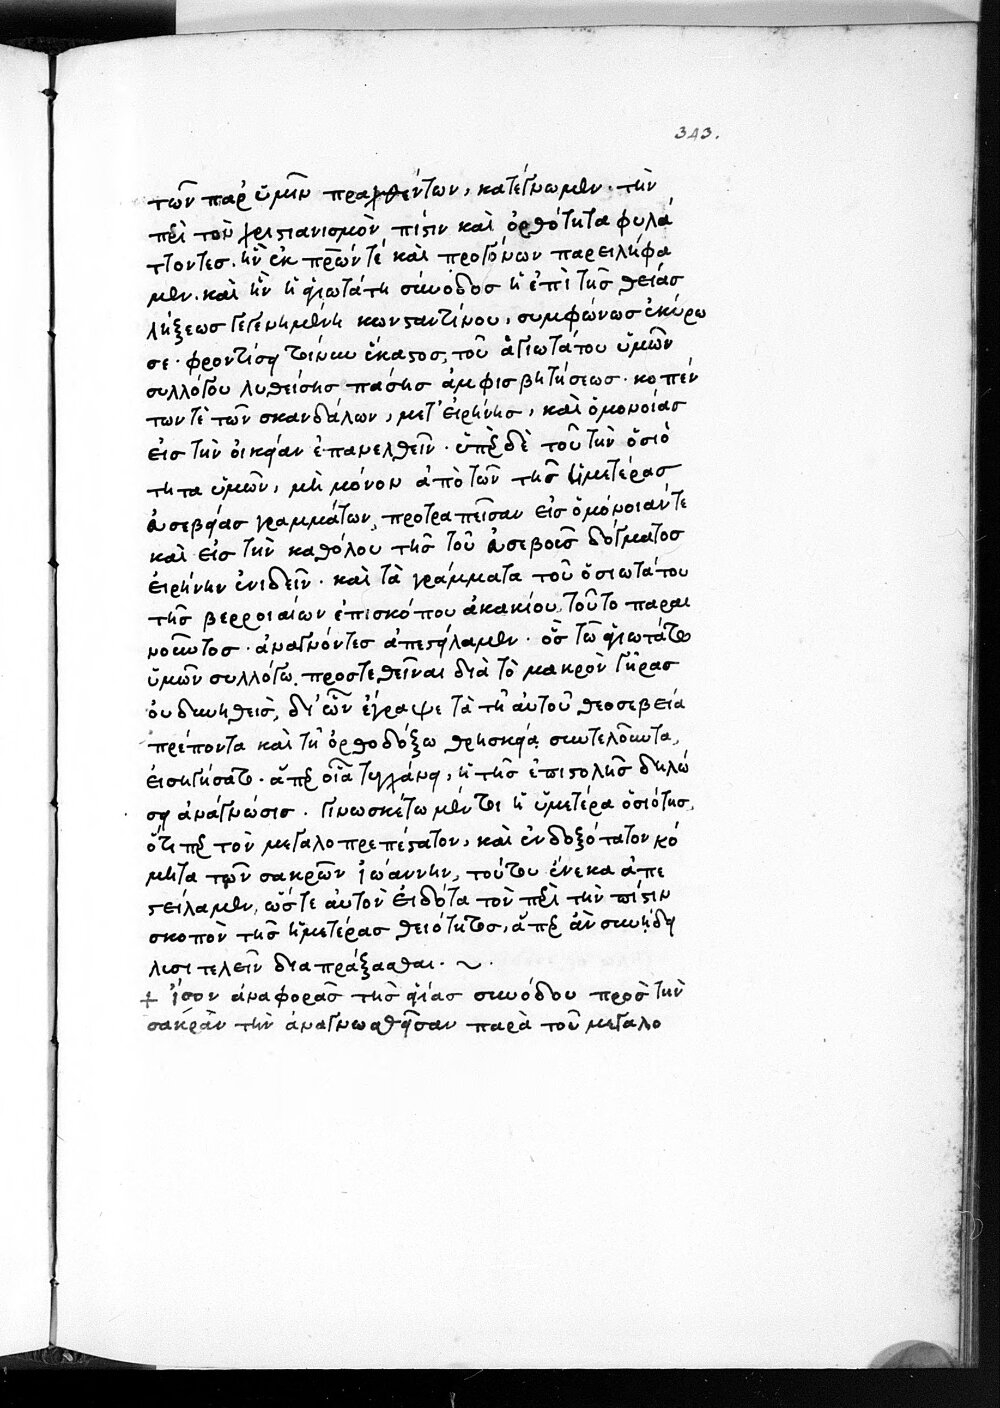 343.
τῶν παρ ὑμῖν πραχθέντων, κατέγνωμεν. τὴν
περὶ τὸν χριστιανισμὸν πίστιν καὶ ὀρθότητα φυλά
ττοντες. ἣν ἐκ πρῶν τέ καὶ προγόνων παρειλήφα
μεν. καὶ ἣν ἡ ἁγιωτάτη σύνοδος ἡ ἐπὶ τῆς θείας
λήξεως γεγενημένη κωνσταντίνου, συμφώνως ἐκύρω
σε. φροντίσει τοίνυν ἕκαστος, τοῦ ἁγιωτάτου ὑμῶν
συλλόγου λυθείσης πάσης ἀμφισβητήσεως. κοπέν
των τὲ τῶν σκανδάλων, μετ' εἰρήνης, καὶ ὁμονοίας
εἰς τὴν οἰκείαν ἐπανελθεῖν. ὑπὲρ δὲ τοῦ τὴν ὁσιό
τητα ὑμῶν, μὴ μόνον ἀπὸ τῶν τῆς ἡμετέρας
εὐσεβείας γραμμάτων, προτραπεῖσαν εἰς ὁμόνοιάν τε
καὶ εἰς τὴν καθόλου τῆς τοῦ εὐσεβοῦς δόγματος
εἰρήνην ἐνιδεῖν. καὶ τὰ γράμματα τοῦ ὁσιωτάτου
τῆς βερροιαίων ἐπισκόπου ἀκακίου, τοῦτο παραι
νοῦντος. ἀναγνόντες ἀπεστείλαμεν. ὃς τῷ ἁγιωτάτῳ
ὑμῶν συλλόγῳ. προστεθεῖναι διὰ τὸ μακρὸν γῆρας
οὐ δυνηθεὶς, δι' ὧν ἔγραψε τὰ τῇ αὐτοῦ θεοσεβεία
πρέποντα καὶ τῇ ὀρθοδόξω θρησκεία συντελοῦντα,
εἰσηγήσατο. ἅπερ οἷα τυγχάνει, ἡ τῆς ἐπιστολῆς δηλώ
σει ἀνάγνωσις. γινωσκέτω μέντοι ἡ ὑμετέρα ὁσιότης,
ὅτιπερ τὸν μεγαλοπρεπέστατον, καὶ ἐνδοξότατον κό
μητα τῶν σακρῶν ἰωάννην, τούτου ἕνεκα ἀπε
στείλαμεν, ὥστε αὐτὸν εἰδότα τὸν περὶ τὴν πίστιν
σκοπὸν τῆς ἡμετέρας θειότητος, ἅπερ ἂν συνείδῃ
λυσιτελεῖν διαπράξασθαι. ~ .
+ ἴσον ἀναφορᾶς τῆς ἁγίας συνόδου πρὸς τὴν
σακρὰν τὴν ἀναγνωσθεῖσαν παρὰ τοῦ μεγαλο